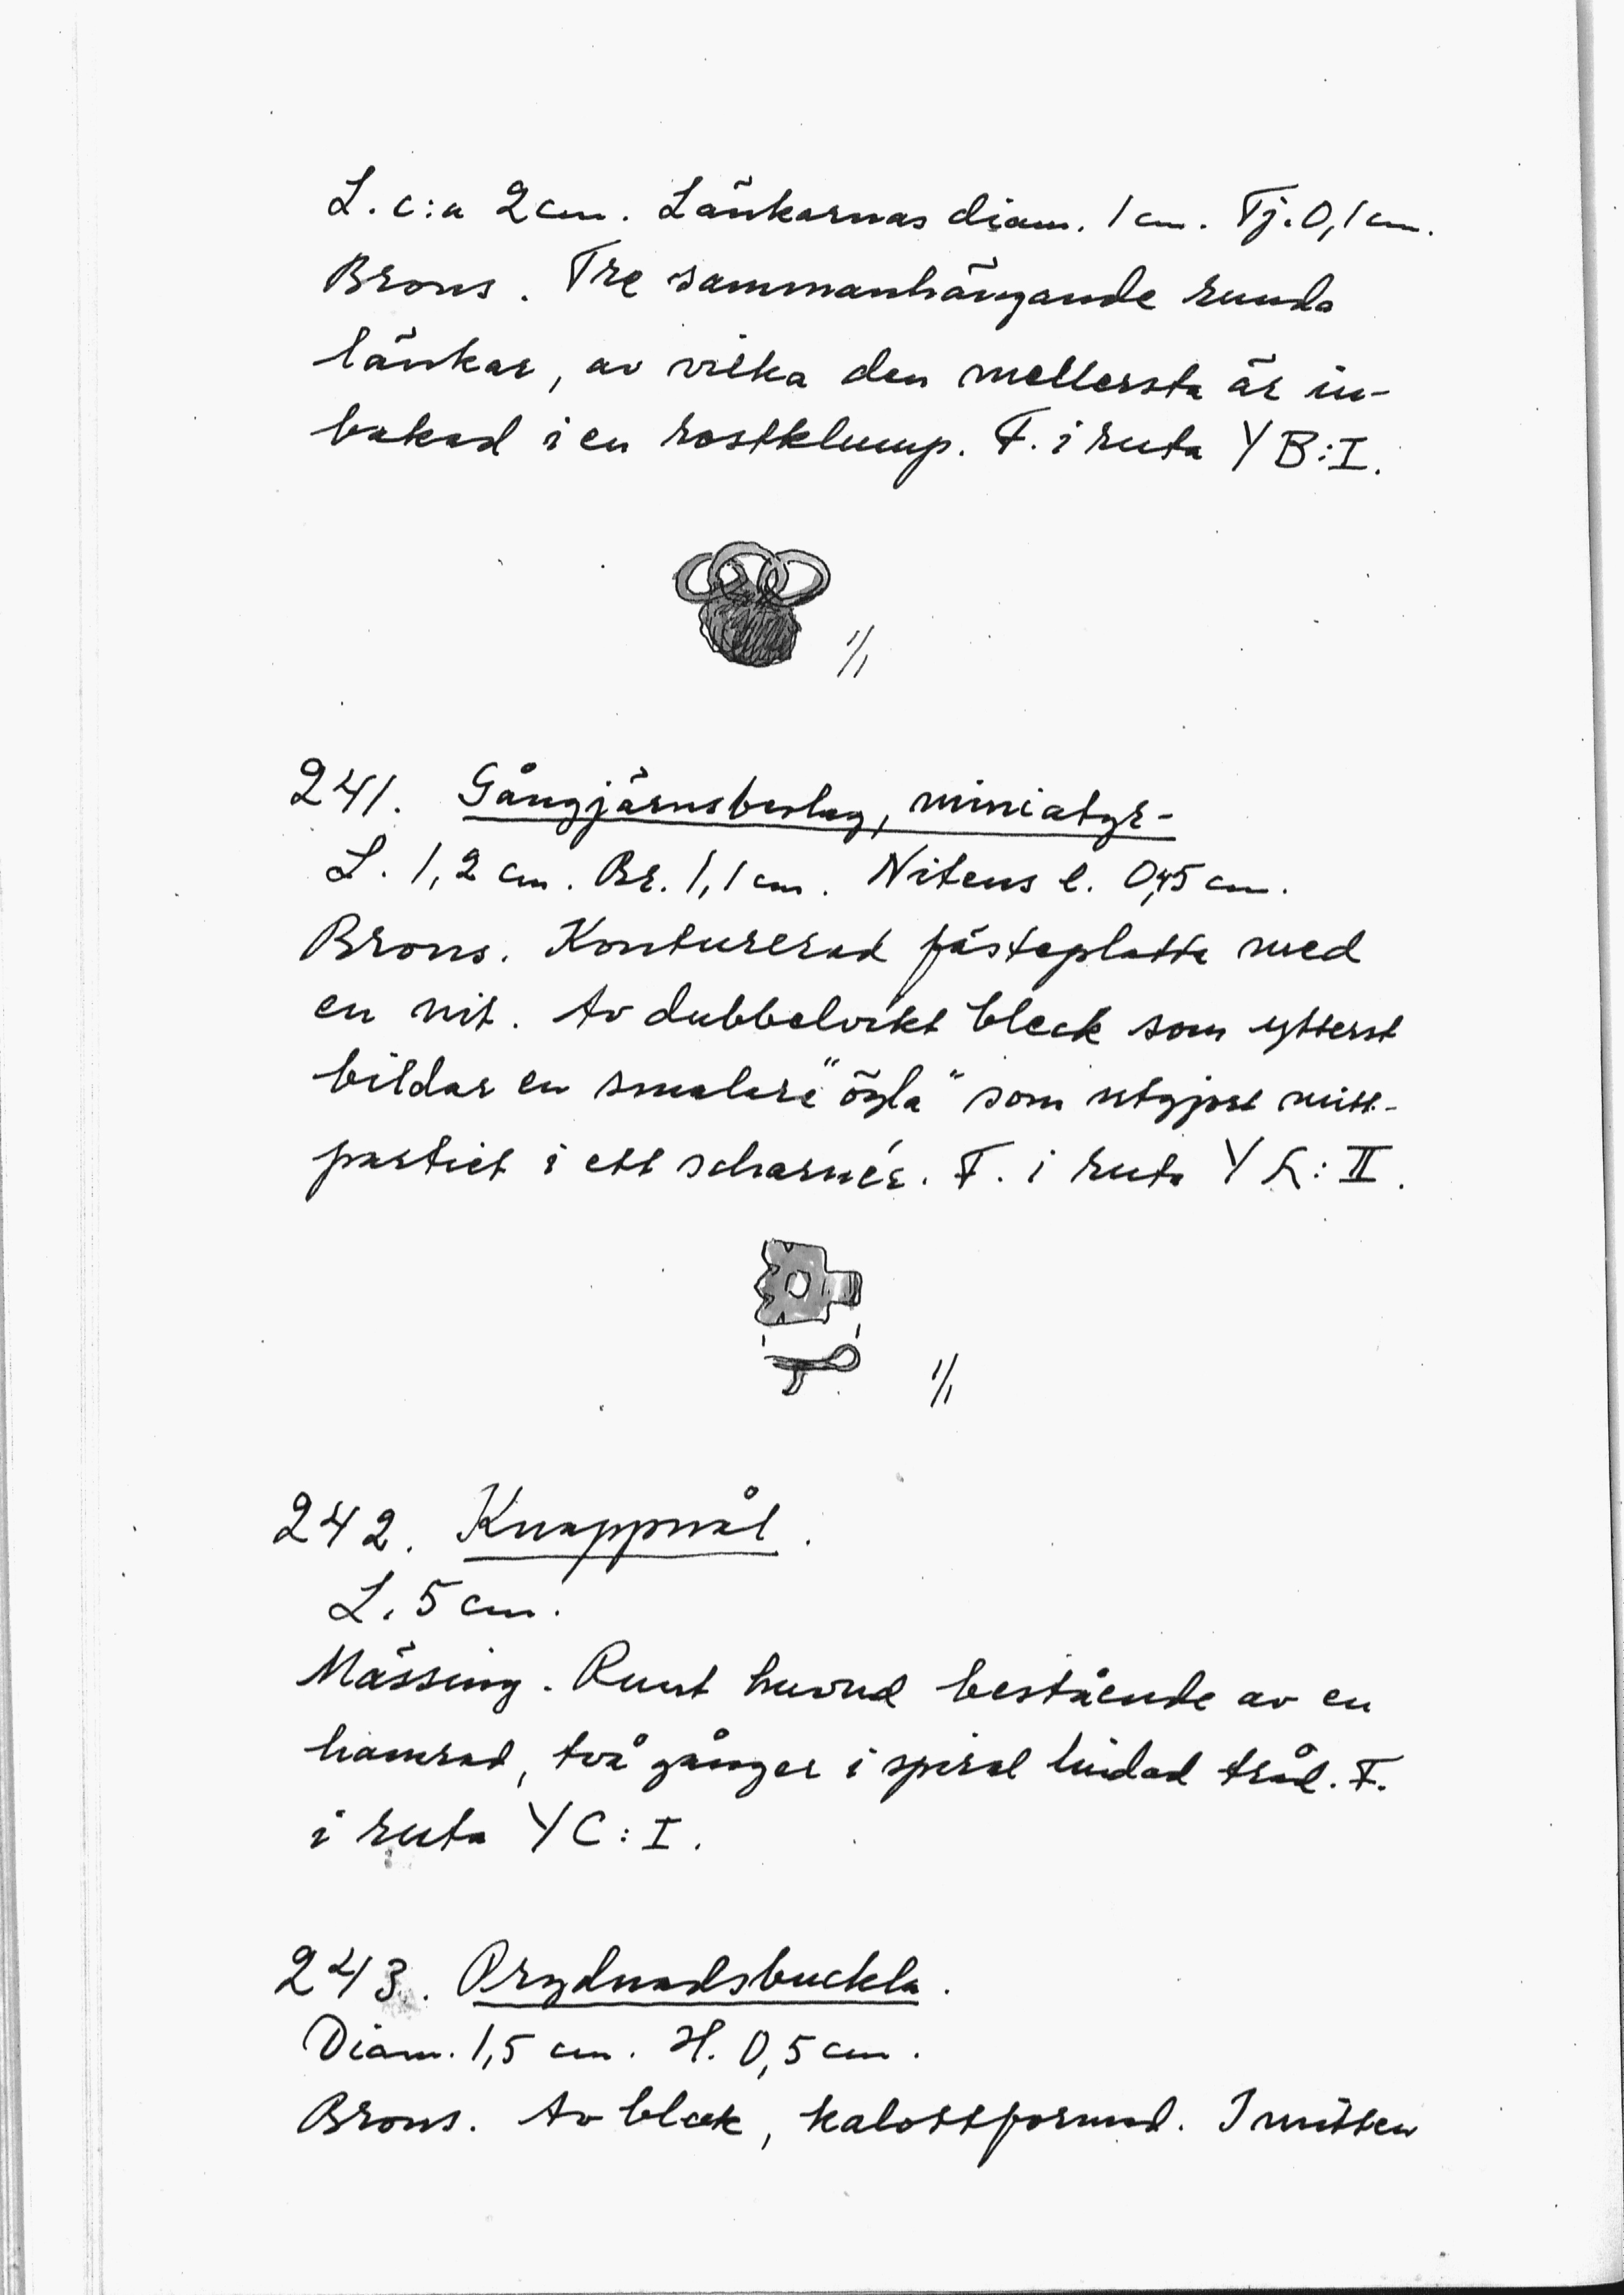 L. c:a 2 cm. Länkarnas diam. 1 cm. Tj. 0,1 cm.
Brons. Tre sammanhängande runda
länkar, av vilka den mellersta är in-
bakad i en rostklump. F. i ruta YB:I.
1/1
241. Gångjärnsbeslag, miniatyr-
L. 1,2 cm. Br. 1,1 cm. Nitens l. 0,45 cm.
Brons. Konturerad fästeplatta med
en nit. Av dubbelvikt bleck som ytterst
bildar en smalare "ögla" som utgjort mitt-
partiet i ett scharnér. F. i ruta Y : II.
1/1
242. Knappnål.
L. 5 cm.
Mässing. Runt huvud bestående av en
hamrad, två gånger i spiral lindad tråd. F.
i ruta YC:I.
243. Prydnadsbuckla.
Diam. 1,5 cm. H. 0,5 cm.
Brons. Av bleck, kalottformad. I mitten